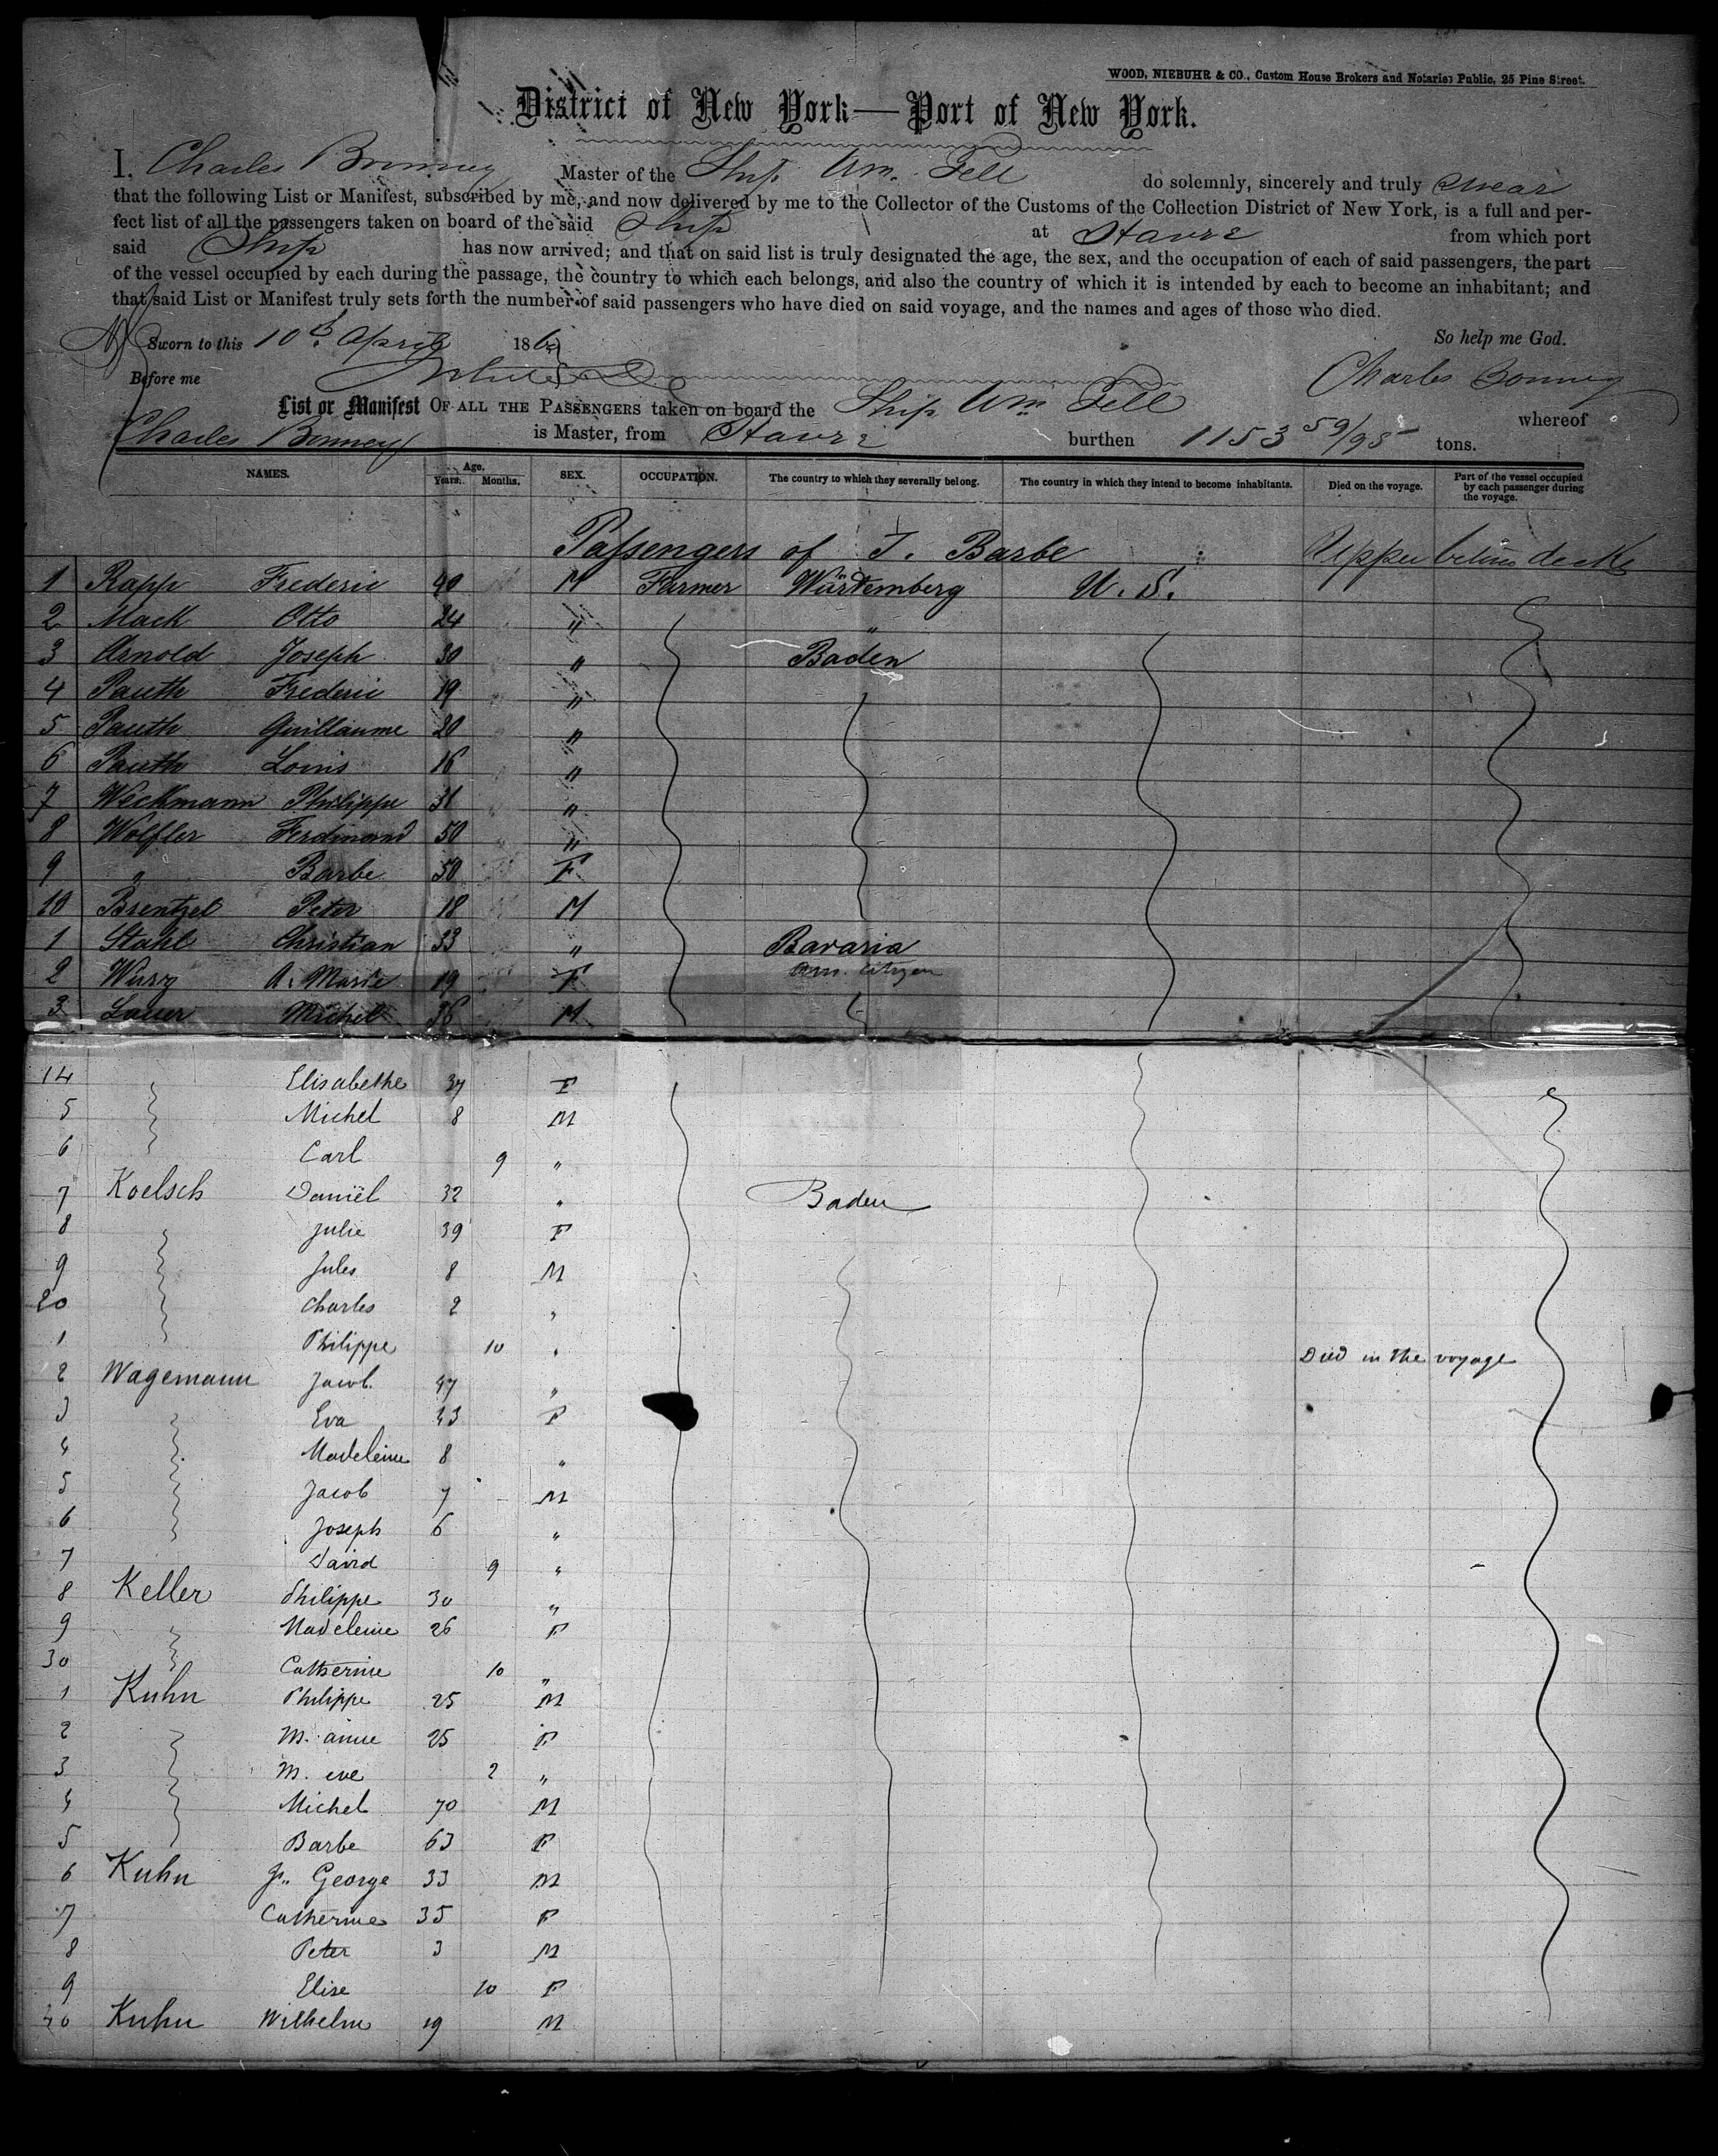 WOOD, NIEBUHR & CO., Custom House Brokers and Notaries Public, 25 Pine Street.
District of New York—Port of New York.
I, Charles Bonney Master of the Ship Wm. Tell do solemnly, sincerely and truly swear
that the following List or Manifest, subscribed by me, and now delivered by me to the Collector of the Customs of the Collection District of New York, is a full and per-
fect list of all the passengers taken on board of the said Ship at Havre from which port
said Ship has now arrived; and that on said list is truly designated the age, the sex, and the occupation of each of said passengers, the part
of the vessel occupied by each during the passage, the country to which each belongs, and also the country of which it is intended by each to become an inhabitant; and
that said List or Manifest truly sets forth the number of said passengers who have died on said voyage, and the names and ages of those who died.
Sworn to this 10th April 186 So help me God.
Before me Charles Bonney
List or Manifest OF ALL THE PASSENGERS taken on board the Ship Wm Tell whereof
Charles Bonney is Master, from Havre burthen 1153 59/95 tons.
NAMES. Age. Years. Months. SEX. OCCUPATION. The country to which they severally belong. The country in which they intend to become inhabitants. Died on the voyage. Part of the vessel occupied by each passenger during the voyage.
Passengers of J. Barbe Upper decks
1 Rapp Frederic 40 M Farmer Würtemberg U. S.
2 Mack Otto 24 " "
3 Arnold Joseph 30 " Baden
4 Pauth Frederic 19 "
5 Pauth Guillaume 20 "
6 Pauth Louis 16 "
7 Weckmann Philippe 31 "
8 Wolfler Ferdinand 50 "
9 " Barbe 50 F
10 Brentzel Peter 18 M
1 Stahl Christian 33 " Bavaria
2 Wurz A. Marie 19 F Am. Citizen
3 Lauer Michel 36 M
14 Elisabethe 37 F
5 Michel 8 M
6 Carl 9 "
7 Koelsch Daniël 32 " Baden
8 Julie 39 F
9 Jules 8 M
20 Charles 2 "
1 Philippe 10 " Died in the voyage
2 Wagemann Jacob 47 "
3 Eva 43 F
4 Madeleine 8 "
5 Jacob 7 M
6 Joseph 6 "
7 David 9 "
8 Keller Philippe 30 "
9 Madeleine 26 F
30 Catherine 10 "
1 Kuhn Philippe 25 M
2 M. anne 25 F
3 M. eve 2 "
4 Michel 70 M
5 Barbe 63 F
6 Kuhn Jn. George 33 M
7 Catherine 35 F
8 Peter 3 M
9 Elise 10 F
40 Kuhn Wilhelm 19 M